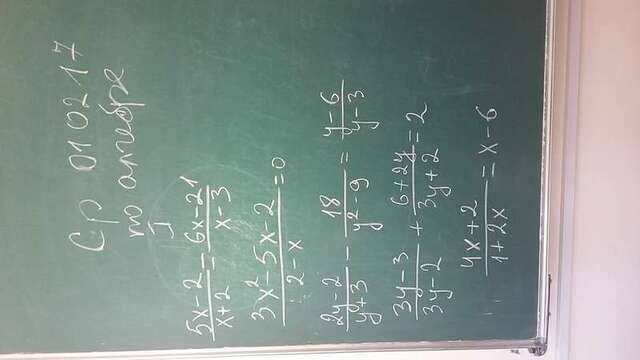 Ср 01 02 17
по алгебре
I
(5x-2)/(x+2) = (6x-21)/(x-3)
(3x²-5x-2)/(2-x) = 0
(2y-2)/(y+3) - 18/(y²-9) = (y-6)/(y-3)
(3y-3)/(3y-2) + (6+2y)/(3y+2) = 2
(4x+2)/(1+2x) = x-6